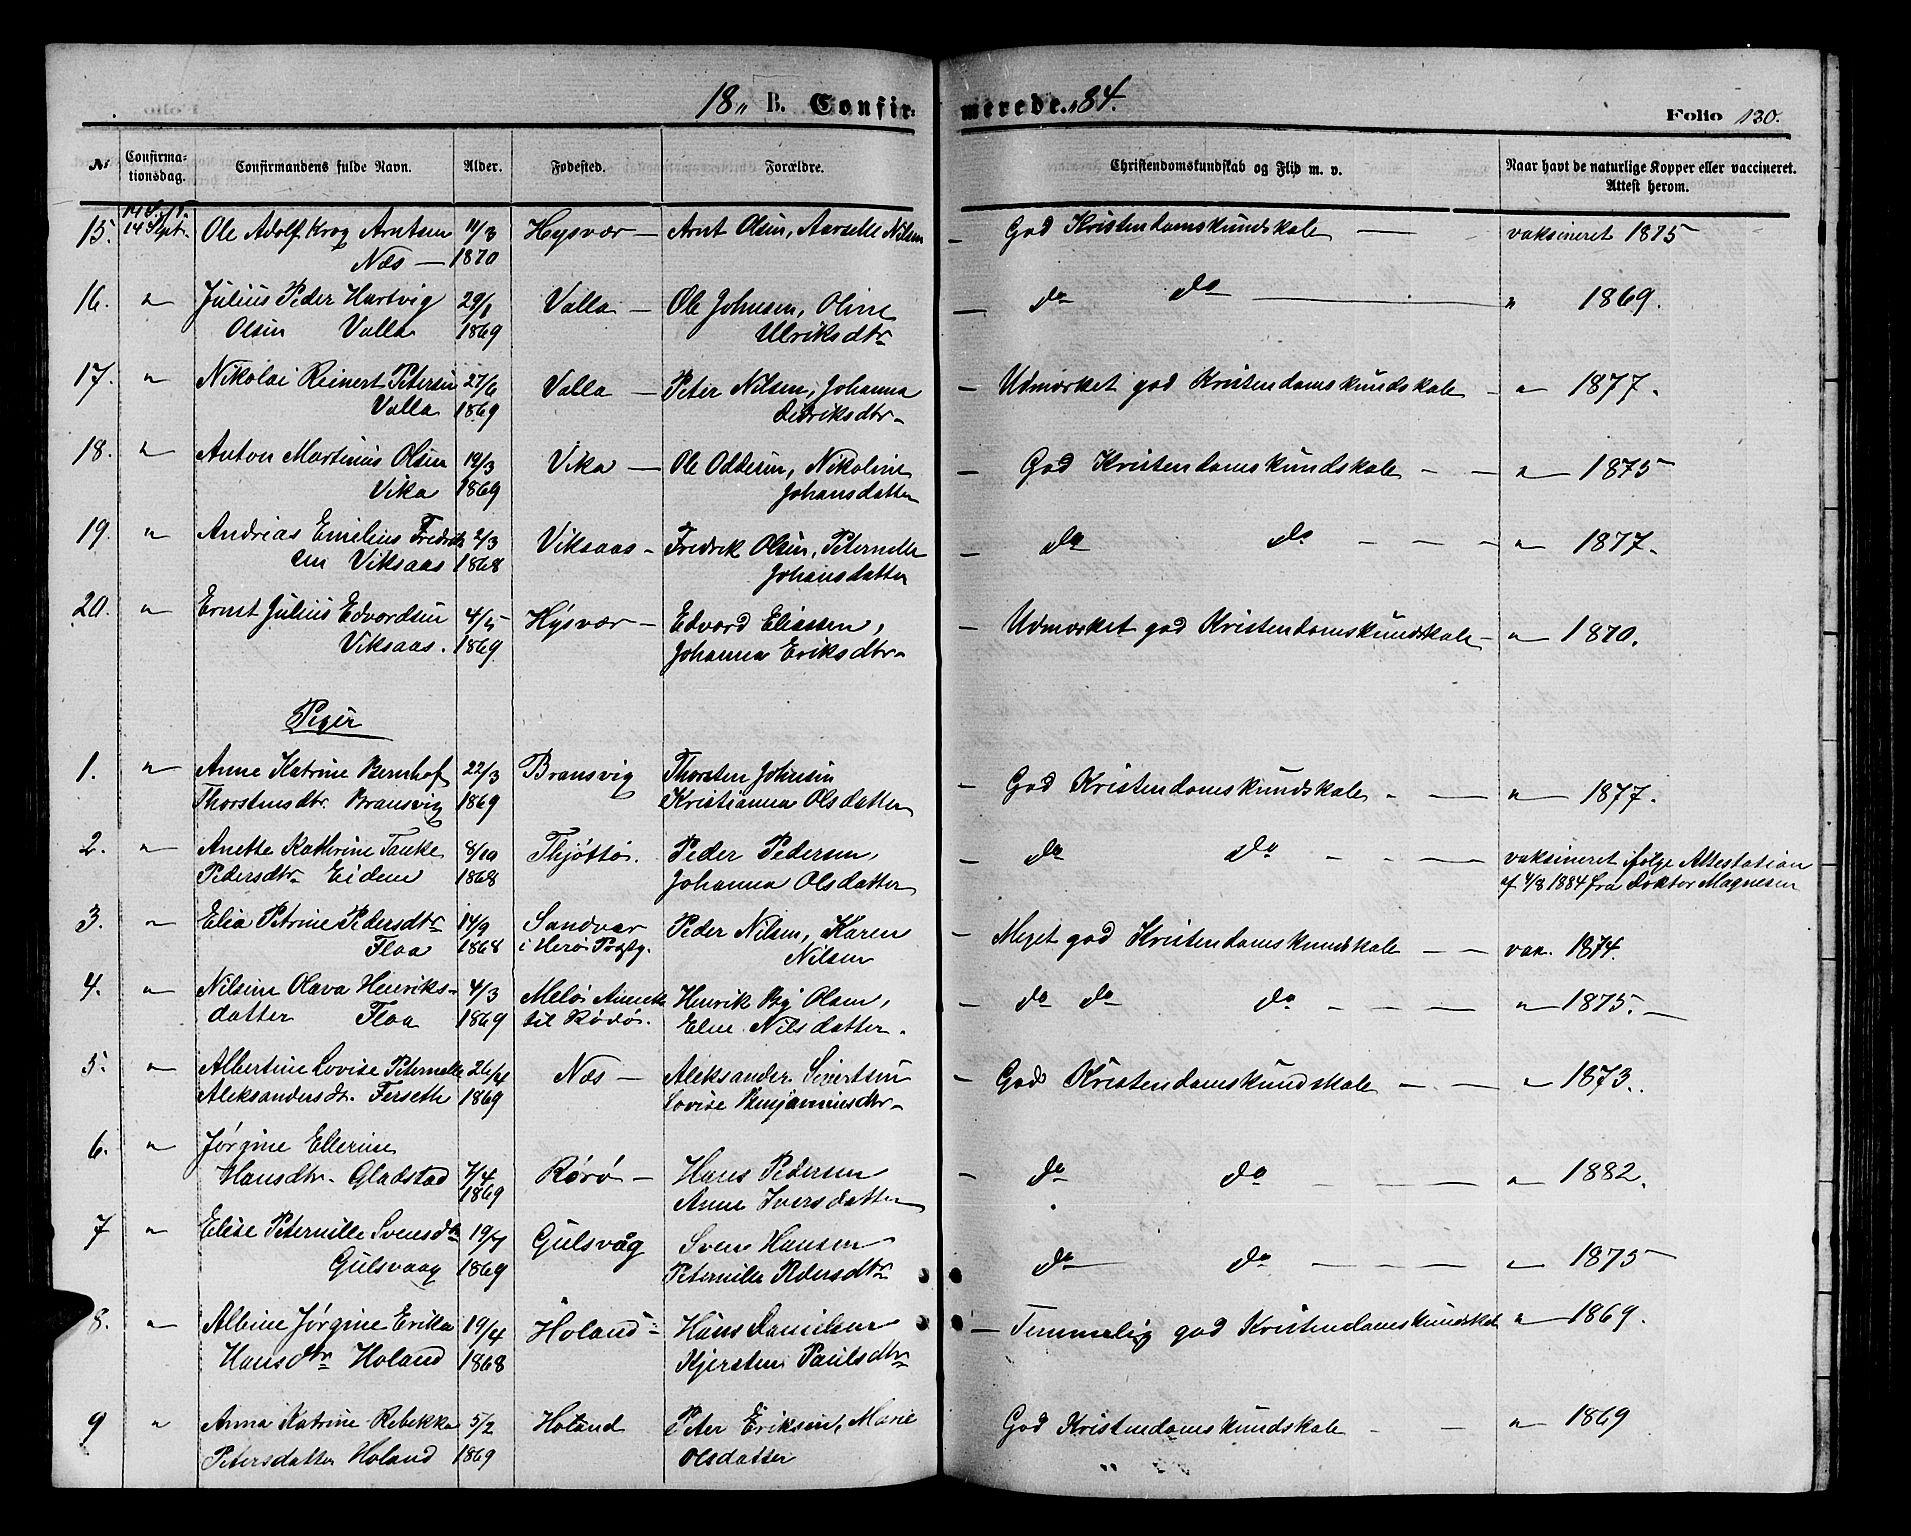 18„ B. Confirmerede. „84.
Folio 130.
№ Confirmationsdag. Confirmandens fulde Navn. Alder. Fødested. Forældre. Christendomskundskab og Flid m. v. Naar havt de naturlige Kopper eller vaccineret. Attest herom.
15. 14 Sept. Ole Adolf Krog Arntsen 11/3 Hysvær — Arnt Olsen, Nilsen — God Kristendomskundskab — vaksineret 1875
Næs — 1870
16. „ Julius Peder Hartvig 29/8 Valla — Ole Johnsen, Oline do do — „ 1869.
Olsen Valla 1869 Ulriksdtr
17. „ Nikolai Reinert Petersen 27/6 Valla — Peter Nilsen, Johanna — Udmærket god Kristendomskundskab — „ 1877.
Valla 1869 Didriksdtr
18. „ Anton Martinus Olsen 19/3 Vika — Ole Oddesen, Nikoline — God Kristendomskundskab — „ 1875
Vika 1869 Johansdatter
19. „ Andreas Emilius Fredrik 2/3 Viksaas — Fredrik Olsen, Peternelle — do do — „ 1877.
sen Viksaas 1868 Johansdatter
20. „ Ernst Julius Edvardsen 4/5 Hysvær — Edvard Eliassen, — Udmærket god Kristendomskundskab — „ 1870.
Viksaas. 1869 Johanna Eriksdtr
Piger
1. „ Anne Katrine Bernhof 22/3 Bransvig Thorsten Johnsen — God Kristendomskundskab — „ 1877.
Thorstensdtr. Bransvig 1869 Kristianna Olsdatter
2. „ Anette Kathrine Tanke 8/10 Thjøttø. Peder Pedersen, — do do — vaksineret ifølge Attestation
Pedersdtr Eidem 1868 Johanna Olsdatter af 4/8 1884 fra Doktor Magnesen
3. „ Elia Petrine Pedersdtr 14/9 Sandvær Peder Nilsen, Karen — Meget god Kristendomskundskab — vax. 1874.
Floa 1868 i Herø Prstg. Nilsen
4. „ Nilsine Olava Henriks- 4/3 Melø Anneks Henrik Olsen, — do do do — „ 1875.
datter Floa 1869 til Rødø. Eline Nilsdatter.
5. „ Albertine Lovise Peternelle 26/4 Næs — Aleksander Sivertsen — God Kristendomskundskab — „ 1873.
Aleksandersdtr. Ferseth 1869 Lovise Benjaminsdtr
6. „ Jørgine Ellerine
Hansdtr. Gladstad 7/4 Rørø — Hans Pedersen — do do — „ 1882.
1869 Anne Iversdatter
7 „ Elise Peternille Svensdtr 19/7 Gulsvåg Sven Hansen do do — „ 1875
Gulsvaag 1869 Peternille Pedersdtr
8. „ Albine Jørgine Erika 19/4 Holand — Hans Danielsen — Temmelig god Kristendomskundskab „ 1869.
Hansdtr Holand 1868 Kjersten Paulsdtr
9 „ Anna Katrine Rebekka 5/2 Holand Peter Eriksen, Marie God Kristendomskundskab — „ 1869
Petersdatter Holand 1869 Olsdatter